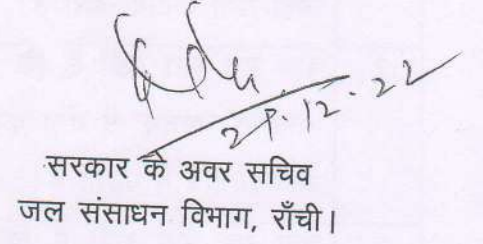 29.12.22
सरकार के अवर सचिव
जल संसाधन विभाग, राँची।